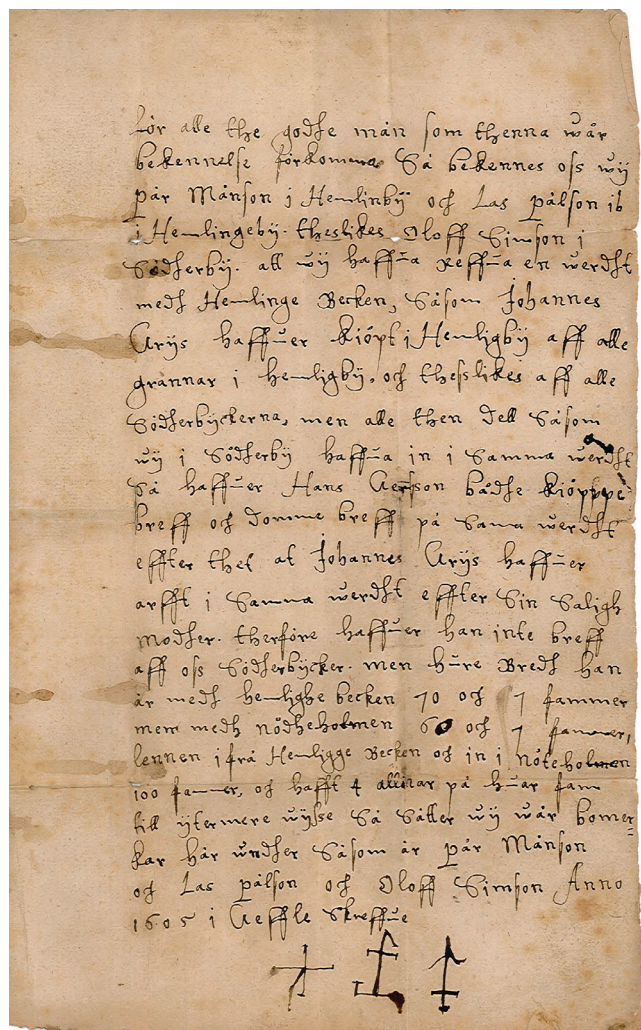 för alle the godhe män som thenna wår
bekennelse förkomma Så bekennes oss wÿ
pär Månson i Hemlinbÿ och Las pålson ib
i Hemlingebÿ. theslikes Oloff Simson i
Södherbÿ. att wÿ haffua Reffua en werdht
medh Hemlinge Becken, Såsom Johannes
Arÿs haffuer kiöpt i Hemligbÿ aff alle
grannar i hemligbÿ. och theslikes aff alle
Södherbÿckerna, men alle then dell Såsom
wÿ i Södherbÿ haffua in i Samma werdht
Så haffuer Hans Aersson bådhe kiöpppe
breff och domme breff på Sama werdht
effter thet at Johannes Arÿs haffuer
arfft i Samma werdht effter Sin Saligh
modher. therföre haffuer han inte breff
aff oss Södherbÿcker. men hure Bredh han
är medh hemlighe becken 70 och 7 fammer
men medh nödheholmen 60 och 7 fammer,
lennen ifrå Hemligge Becken och in i nöteholmen
100 fammer, och hafft 4 allnar på huar fam
till ÿtermere wÿsse Så Sätter wÿ wår bomer-
kar här undher Såsom är pär Månson
och Las pålson och Oloff Simson Anno
1605 i Aeffle Skreffue